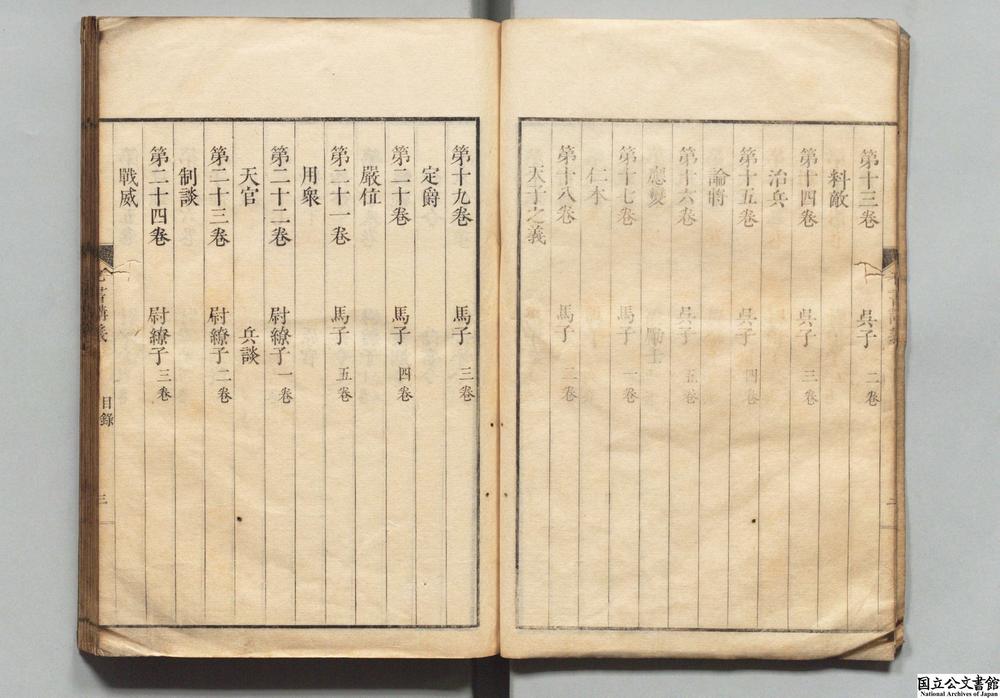 第十三卷 吳子 二卷
料敵
第十四卷 吳子 三卷
治兵
第十五卷 吳子 四卷
論將
第十六卷 吳子 五卷
應變 勵士
第十七卷 馬子 一卷
仁本
第十八卷 馬子 二卷
天子之義
第十九卷 馬子 三卷
定爵
第二十卷 馬子 四卷
嚴位
第二十一卷 馬子 五卷
用衆
第二十二卷 尉繚子 一卷
天官 兵談
第二十三卷 尉繚子 二卷
制談
第二十四卷 尉繚子 三卷
戰威
目錄
三
国立公文書館
National Archives of Japan